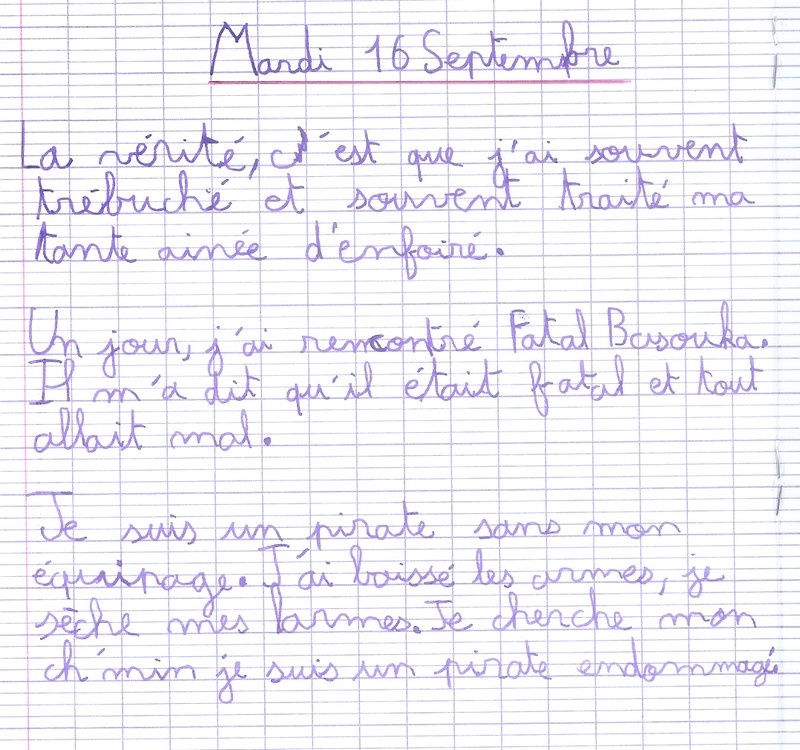 Mardi 16 Septembre
La vérité, c'est que j'ai souvent
trébuché et souvent traité ma
tante ainée d'enfoiré.
Un jour, j'ai rencontré Fatal Basouka.
Il m'a dit qu'il était fatal et tout
allait mal.
Je suis un pirate sans mon
équipage. J'ai baissé les armes, je
sèche mes larmes. Je cherche mon
ch'min je suis un pirate endommagé